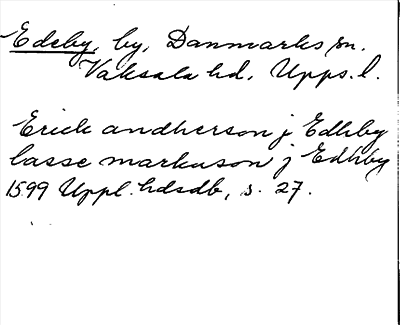 Edeby, by, Danmarks sn.
Vaksala hd, Upps. l.
Erick andherson j Edhby
lasse markuson j Edhby
1599 Uppl. hdsdb, s. 27.